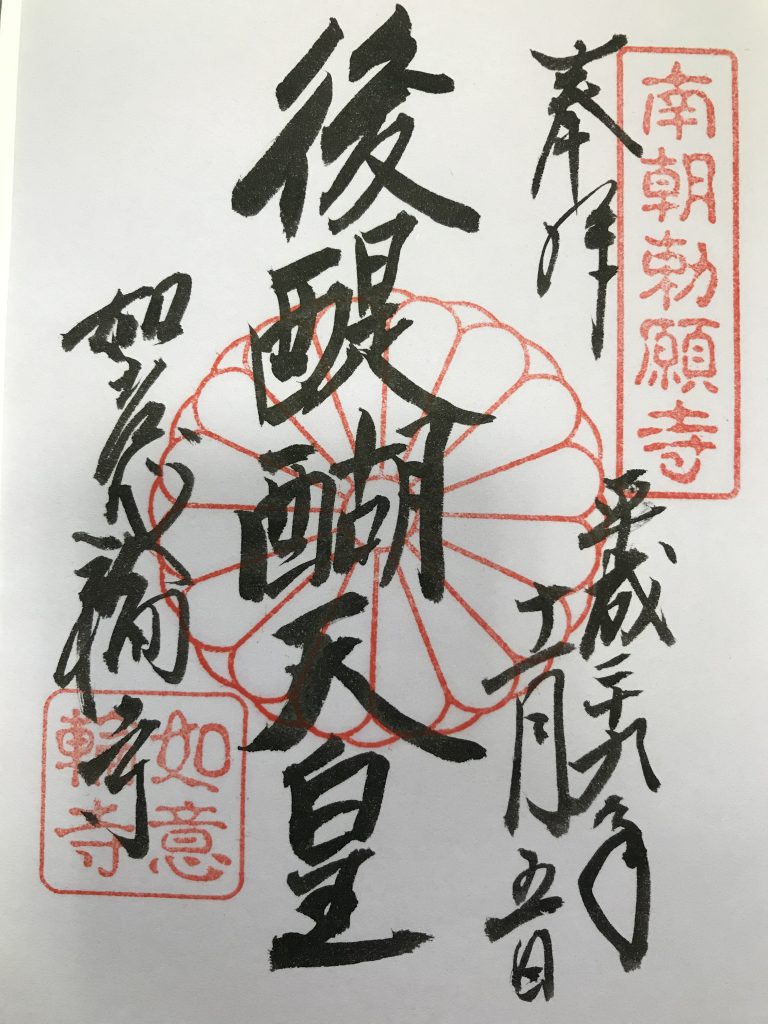 南朝勅願寺
奉拝
平成二十九年
十一月五日
後醍醐天皇
如意輪寺
如意
輪寺